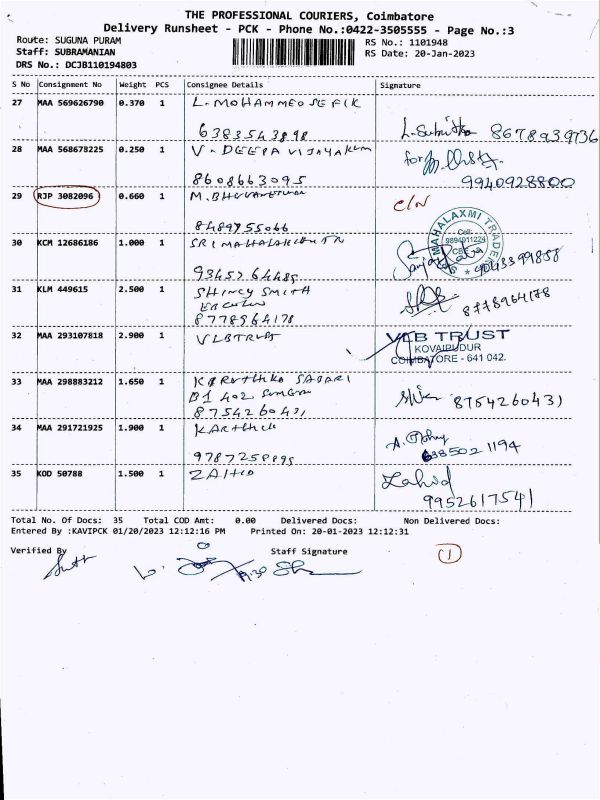 THE PROFESSIONAL COURIERS, Coimbatore
Delivery Runsheet - PCK - Phone No.:0422-3505555 - Page No.:3
Route: SUGUNA PURAM
RS No.: 1101948
Staff: SUBRAMANIAN
RS Date: 20-Jan-2023
DRS No.: DCJB110194803
S No Consignment No Weight PCS Consignee Details Signature
27 MAA 569626790 0.370 1 L. MOHAMMED SEFIK
6383543898 8678939736
28 MAA 568678225 0.250 1 V. DEEPA VIJAYAKUM
for
8608663095 9940928800
29 RJP 3082096 0.660 1 M.
8489755066
MAHALAXMI TRADERS
Cell:
9894011224
CBE
30 KCM 12686186 1.000 1 SRI MAHALAKSHMI TN
9345764485 9043399858
31 KLM 449615 2.500 1 SHINCY SMITH
8778964178 8778964178
32 MAA 293107818 2.900 1 VLBTRUST
VLB TRUST
KOVAIPUDUR
COIMBATORE - 641 042.
33 MAA 298883212 1.650 1 KARUTHIKA SABARI
B1 402
8754260431 8754260431
34 MAA 291721925 1.900 1 KARTHICK
9787258895 6385021194
35 KOD 50788 1.500 1 ZAHID
Zahid
9952617541
Total No. Of Docs: 35 Total COD Amt: 0.00 Delivered Docs: Non Delivered Docs:
Entered By :KAVIPCK 01/20/2023 12:12:16 PM Printed On: 20-01-2023 12:12:31
Verified By Staff Signature
1